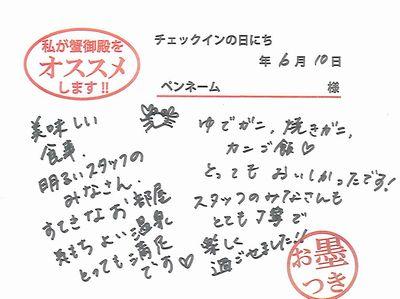 私が蟹御殿を
オススメ
します!!
チェックインの日にち
年 6月 10日
ペンネーム 様
美味しい
食事。
明るいスタッフの
みなさん。
すてきなお部屋
気もちよい温泉
とっても満足
です♡
ゆでガニ、焼きガニ、
カニご飯♡
とっても おいしかったです!
スタッフのみなさんも
とても丁寧で
楽しく
過ごせました!!
お墨
つき